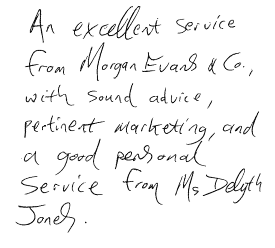 An excellent service
from Morgan Evans & Co.,
with sound advice,
pertinent marketing, and
a good personal
Service from Ms Delyth
Jones.